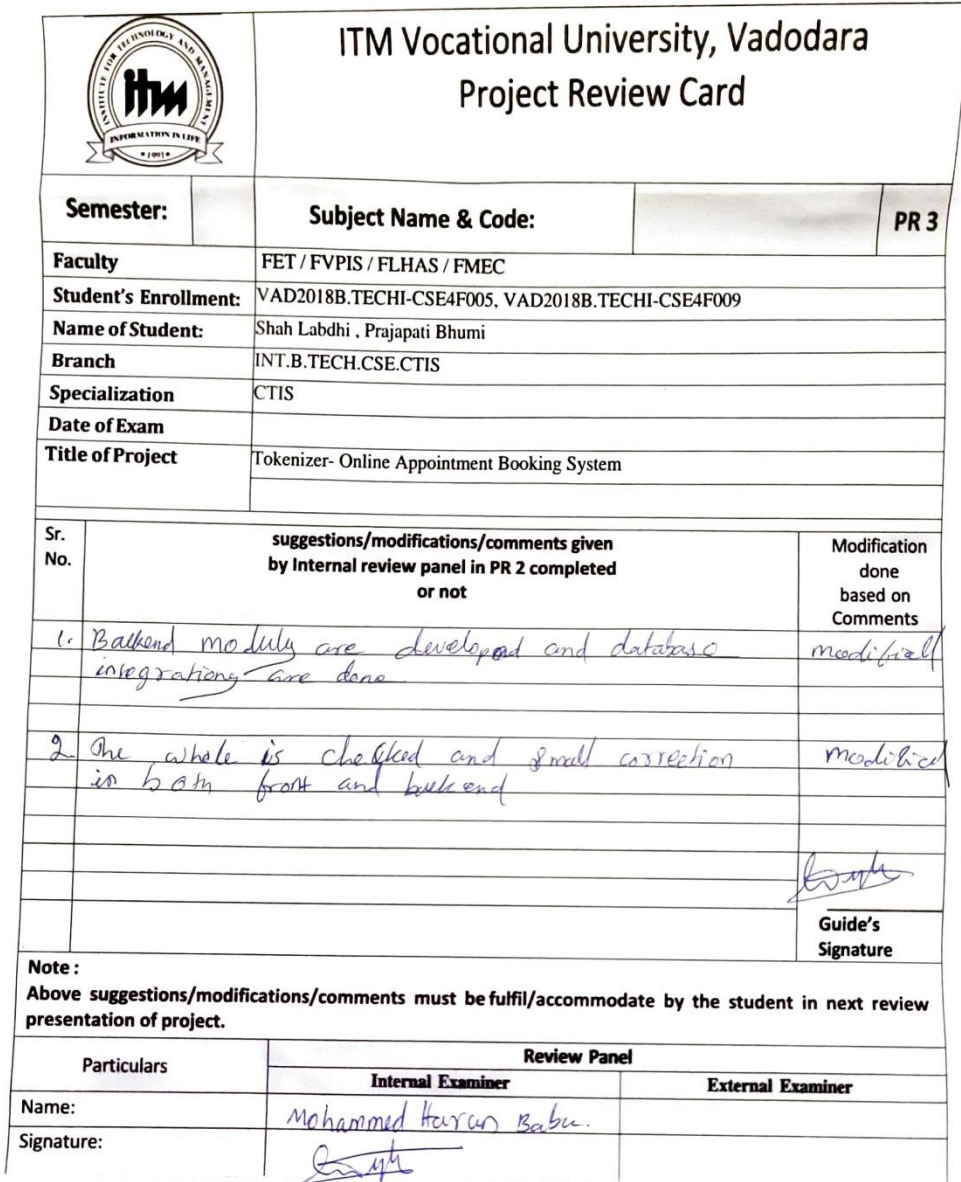 INSTITUTE FOR TECHNOLOGY AND MANAGEMENT
itm
INFORMATION IS LIFE
• 1991 •
ITM Vocational University, Vadodara
Project Review Card
Semester:
Subject Name & Code:
PR 3
Faculty
FET / FVPIS / FLHAS / FMEC
Student's Enrollment:
VAD2018B.TECHI-CSE4F005, VAD2018B.TECHI-CSE4F009
Name of Student:
Shah Labdhi , Prajapati Bhumi
Branch
INT.B.TECH.CSE.CTIS
Specialization
CTIS
Date of Exam
Title of Project
Tokenizer- Online Appointment Booking System
Sr.
No.
suggestions/modifications/comments given
by Internal review panel in PR 2 completed
or not
Modification
done
based on
Comments
1. Backend modules are developed and database
integrations are done
modified
2. The whole is checked and small correction
in both front and backend
modified
Guide's
Signature
Note :
Above suggestions/modifications/comments must be fulfil/accommodate by the student in next review
presentation of project.
Particulars
Review Panel
Internal Examiner
External Examiner
Name:
Mohammed Harun Babu.
Signature: